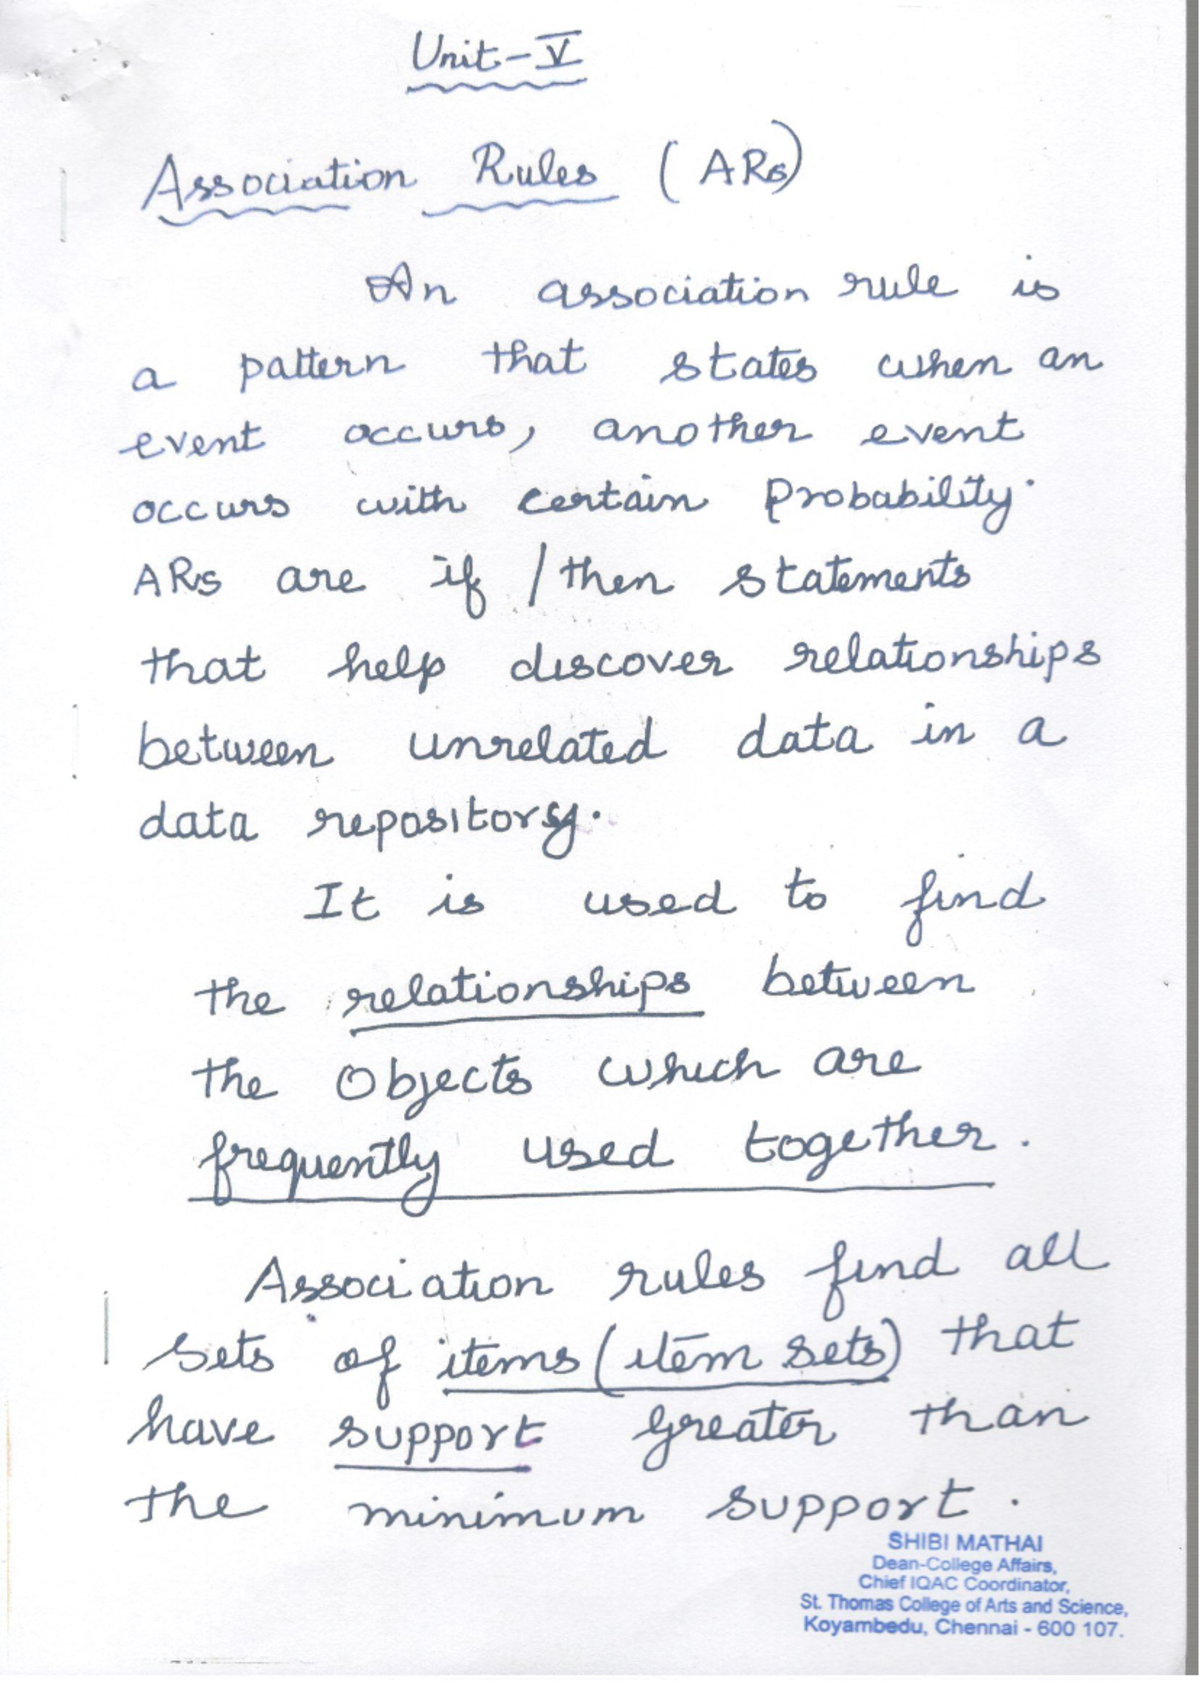 Unit-V
Association Rules (ARs)
An association rule is
a pattern that states when an
event occurs, another event
occurs with certain Probability.
ARs are if / then statements
that help discover relationships
between unrelated data in a
data repository.
It is used to find
the relationships between
the Objects which are
frequently used together.
Association rules find all
sets of items (item sets) that
have support greater than
the minimum support.
SHIBI MATHAI
Dean-College Affairs,
Chief IQAC Coordinator,
St. Thomas College of Arts and Science,
Koyambedu, Chennai - 600 107.